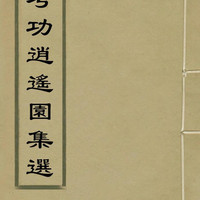 考功逍遙園集選